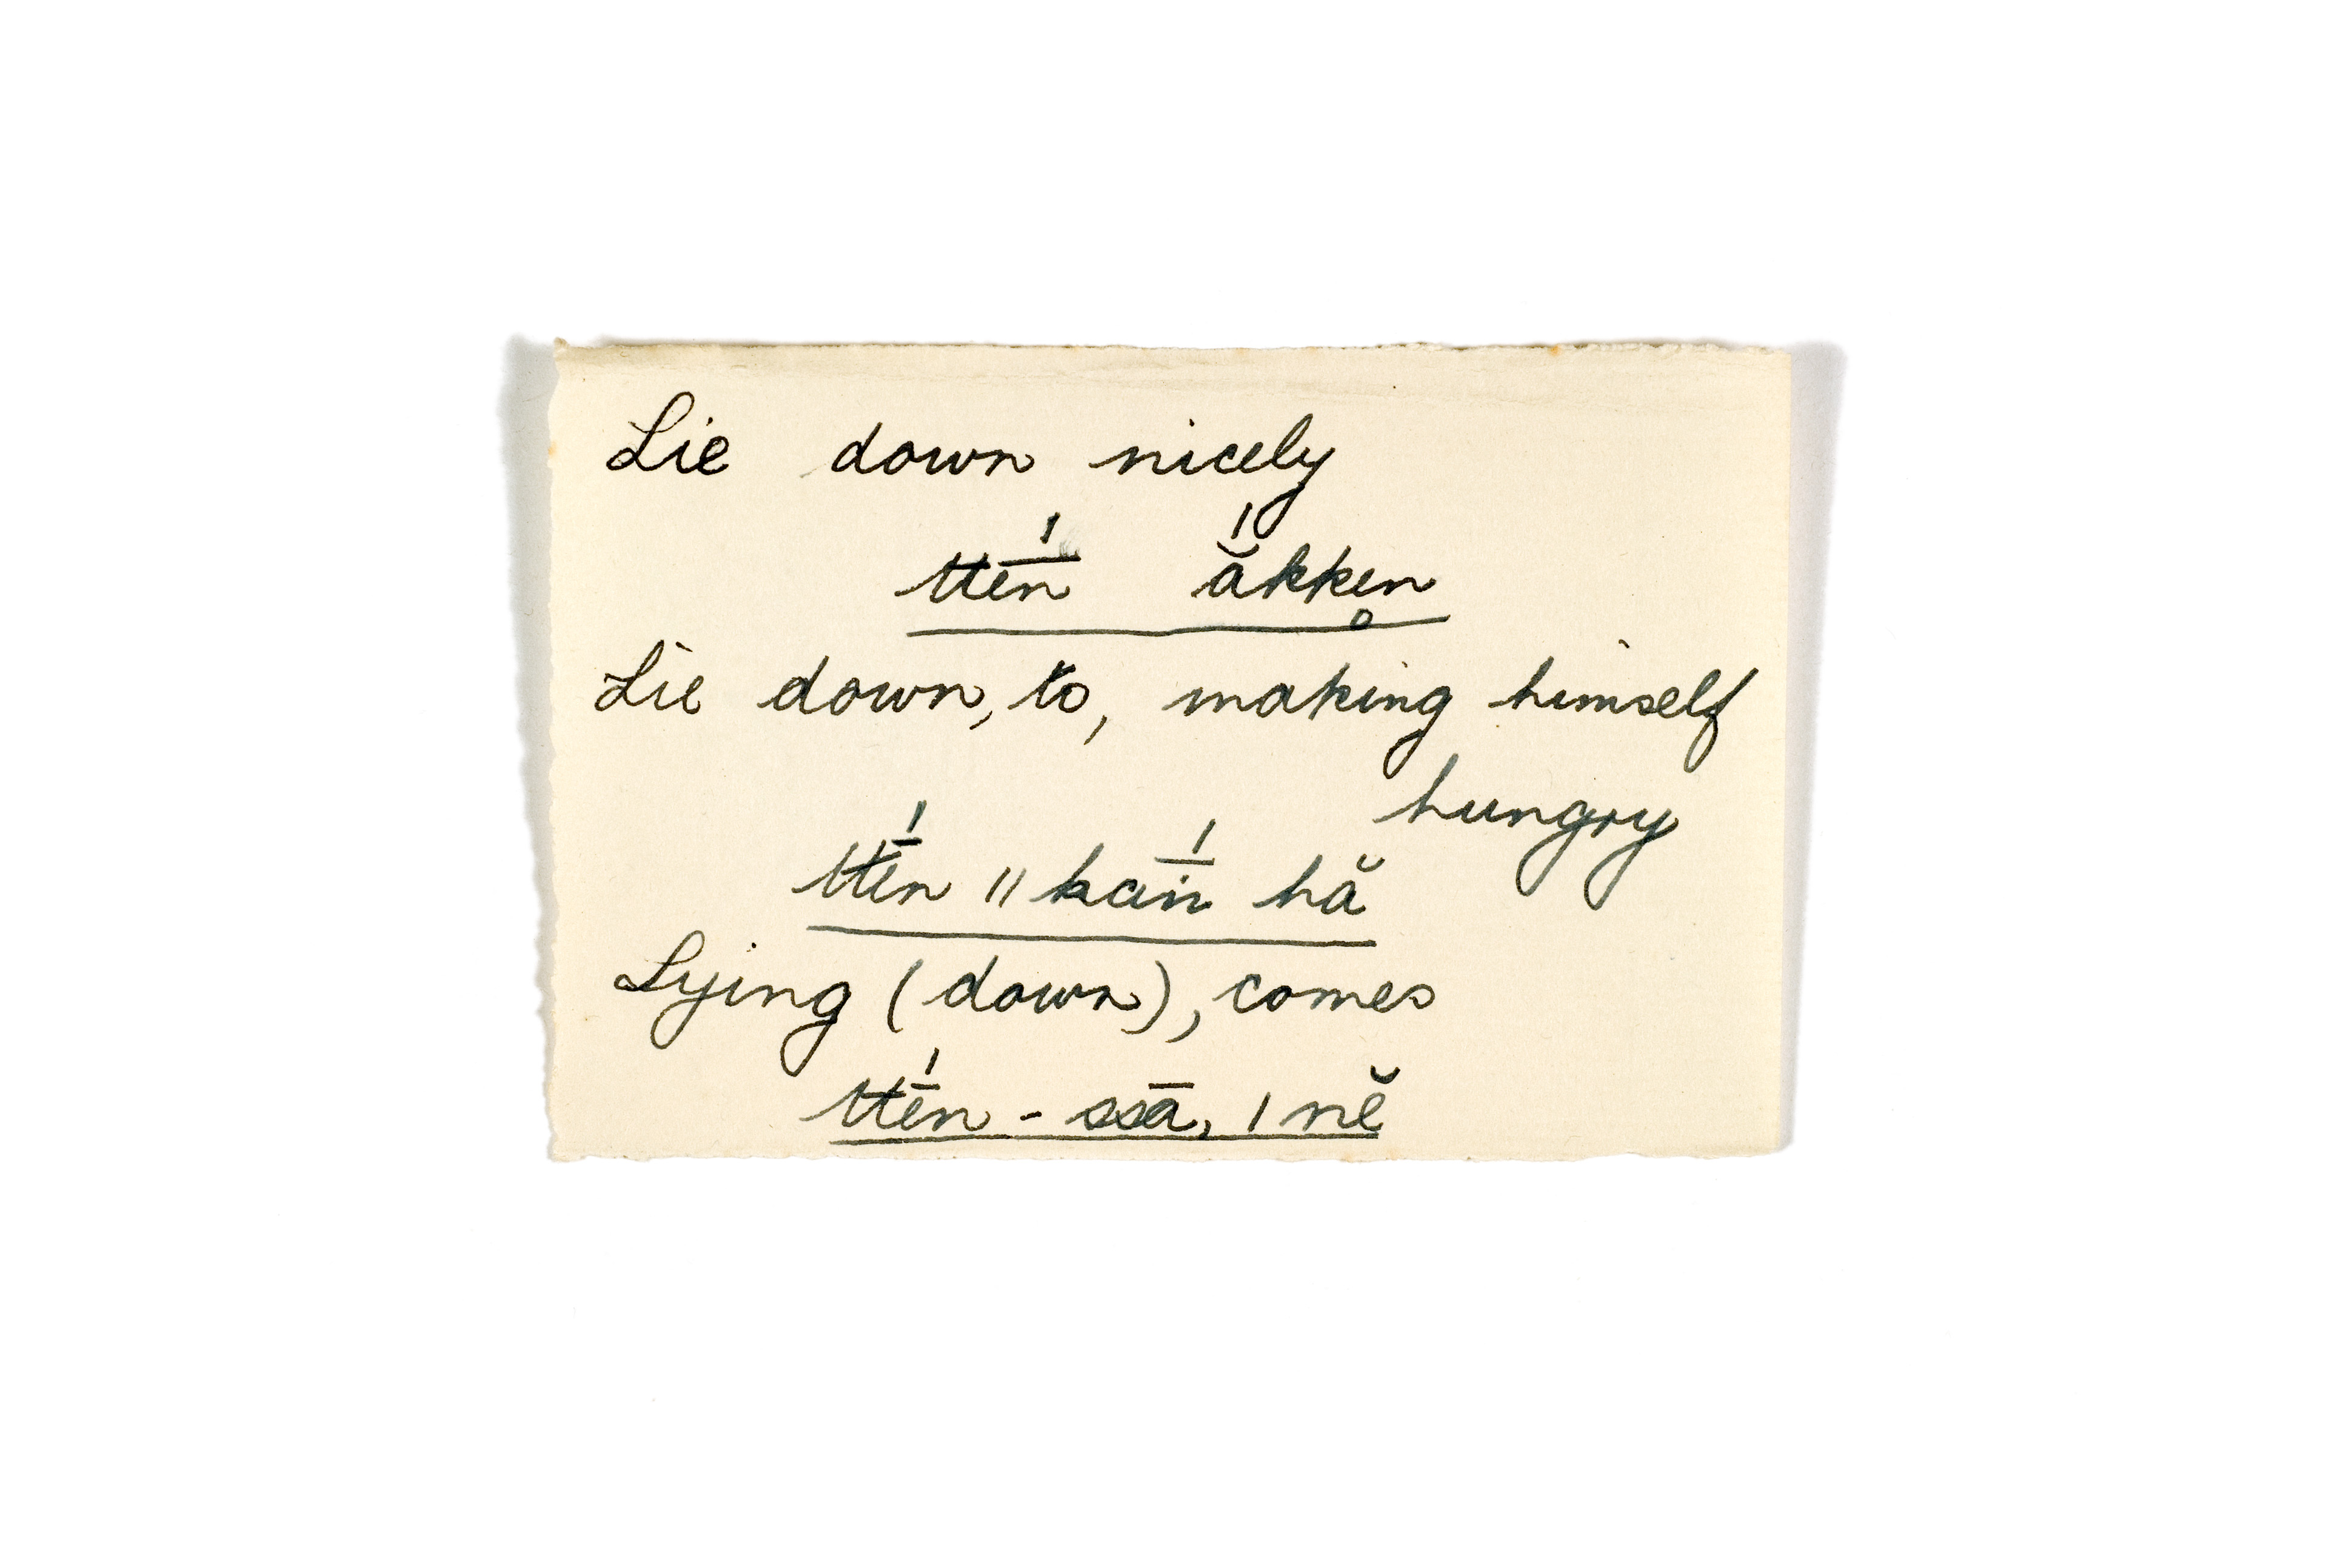 Lie down nicely
ttḗn ắkken̥
Lie down, to, making himself
hungry
ttḗn ǁkaīń hă
Lying (down), comes
ttḗn - ssā, ǀnĕ